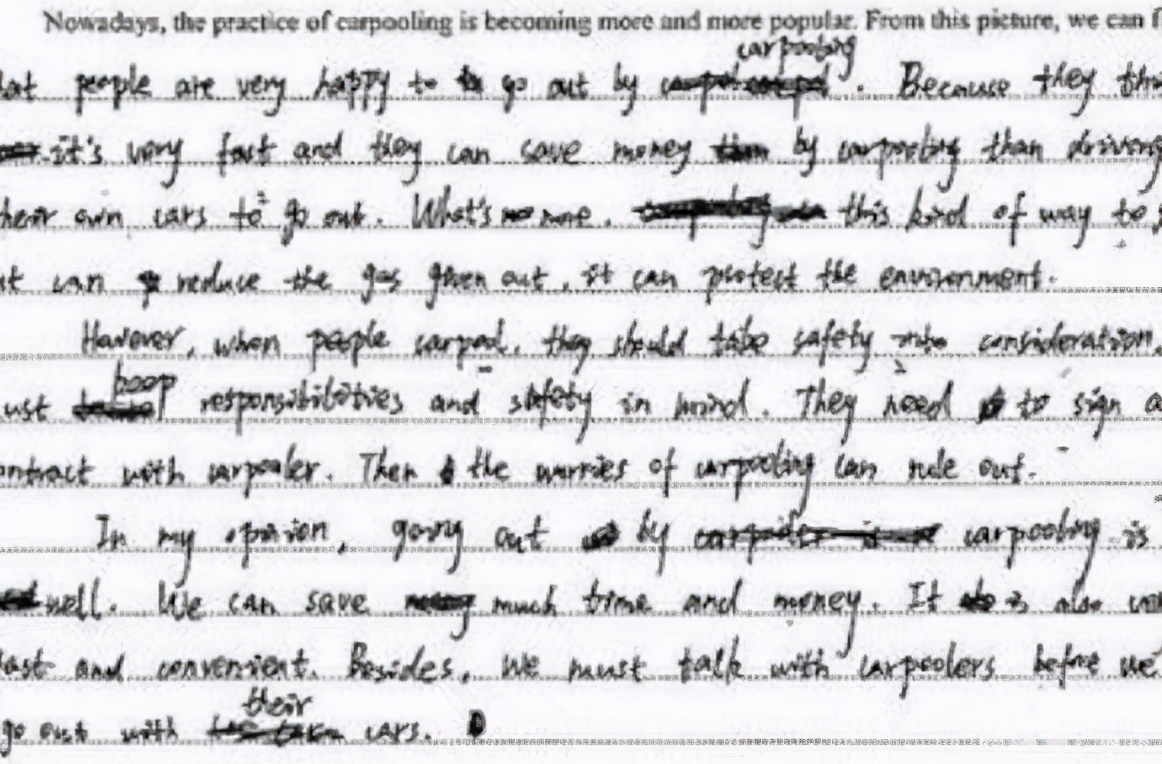 Nowadays, the practice of carpooling is becoming more and more popular. From this picture, we can f
hat people are very happy to go out by carpooling. Because they thi
it's very fast and they can save money by carpooling than driving
heir own cars to go out. What's more, this kind of way to
it can reduce the gas given out, it can protect the environment.
However, when people carpool, they should take safety into consideration.
ust keep responsibilities and safety in mind. They need to sign a
ontract with carpooler. Then the worries of carpooling can rule out.
In my opinion, going out by carpooling is
well. We can save much time and money. It is also
fast and convenient. Besides, we must talk with carpoolers before we
go out with their cars.